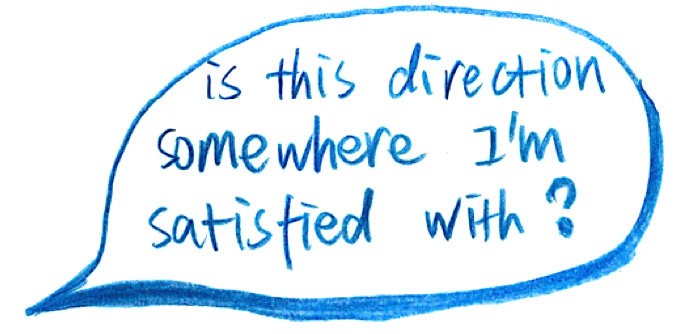 is this direction
somewhere I'm
satisfied with?